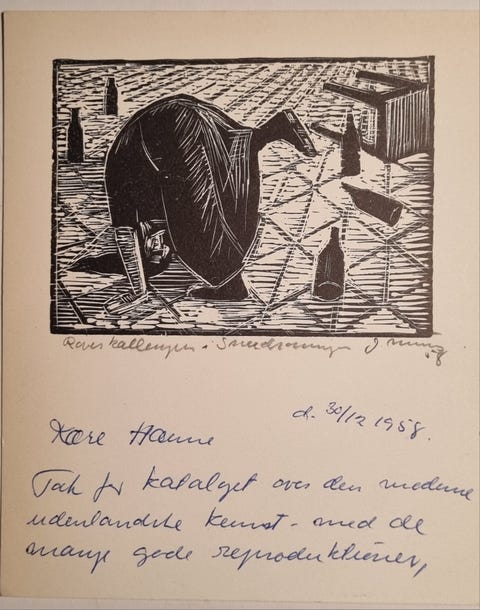 i Snedronningen
58
d. 30/12 1958.
Kære Hanne
Tak for kataloget over den moderne
udenlandske kunst - med de
mange gode reproduktioner,